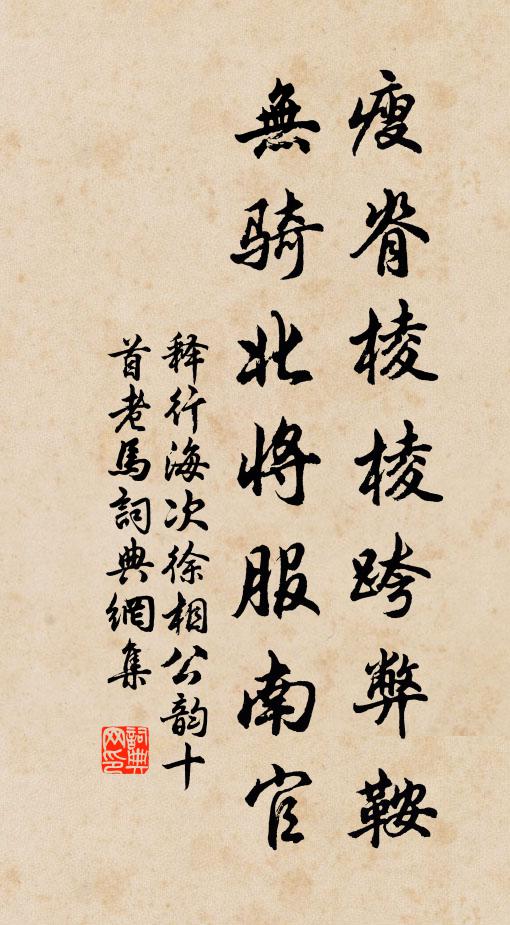 瘦脊棱棱跨弊鞍
無骑北将服南官
释行海次徐相公韵十
首老馬詞典網集
詞典网印